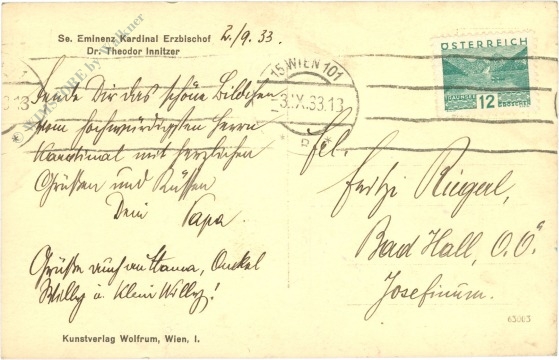 Se. Eminenz Kardinal Erzbischof
Dr. Theodor Innitzer
2./9. 33.
15 WIEN 101
3.IX.33.13
ÖSTERREICH
12
GROSCHEN
Sende Dir das schöne Bildchen
vom hochwürdigsten Herrn
Kardinal mit herzlichen
Grüßen und Küssen
Dein Papa.
Grüße auch an Mama, Onkel
Willy u. Klein Willy!
Frl.
Fritzi Riegerl,
Bad Hall, O.Ö.
Josefinum.
63003
Kunstverlag Wolfrum, Wien, I.